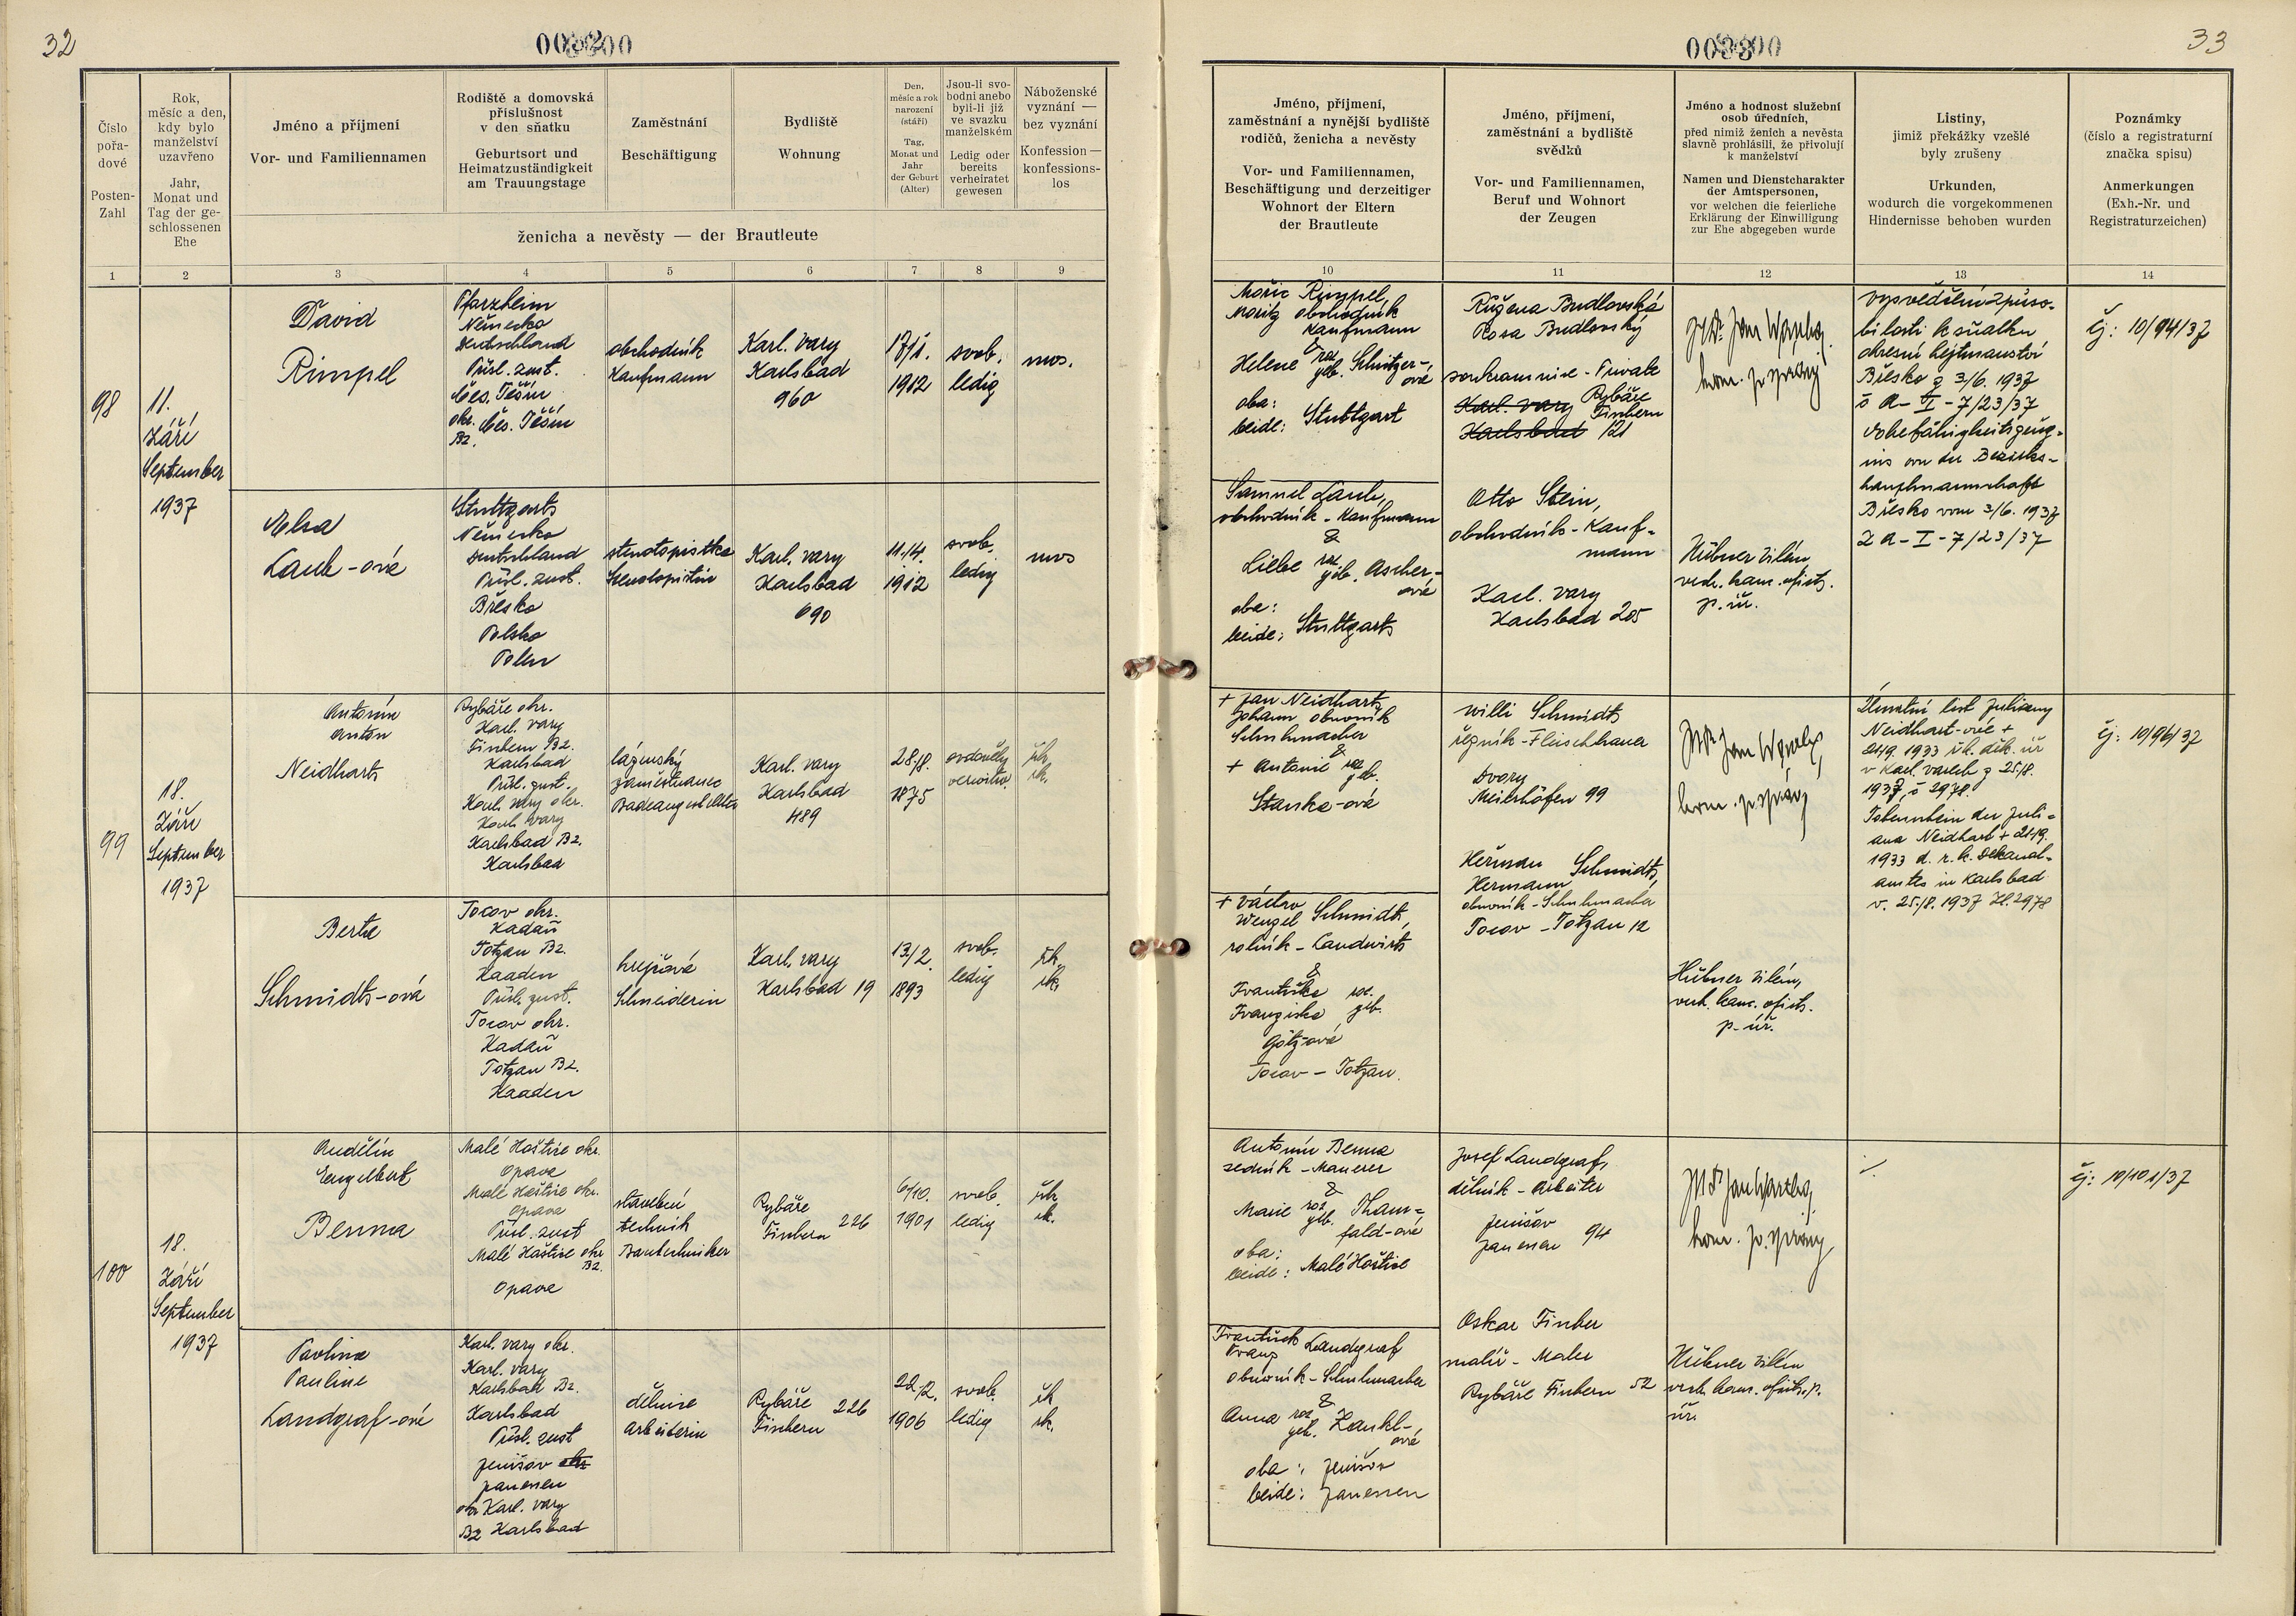 32
0032
Číslo pořadové
Posten-Zahl
Rok, měsíc a den, kdy bylo manželství uzavřeno
Jahr, Monat und Tag der geschlossenen Ehe
Jméno a příjmení
Vor- und Familiennamen
Rodiště a domovská příslušnost v den sňatku
Geburtsort und Heimatzuständigkeit am Trauungstage
Zaměstnání
Beschäftigung
Bydliště
Wohnung
Den, měsíc a rok narození (stáří)
Tag, Monat und Jahr der Geburt (Alter)
Jsou-li svobodni anebo byli-li již ve svazku manželském
Ledig oder bereits verheiratet gewesen
Náboženské vyznání — bez vyznání
Konfession — konfessionslos
ženicha a nevěsty — der Brautleute
1 2 3 4 5 6 7 8 9
98
11.
září
September
1937
David
Rimpel
Pforzheim
Německo
Deutschland
Přísl. zust.
Čes. Těšín
okr. Čes. Těšín
Bz.
obchodník
Kaufmann
Karl. Vary
Karlsbad
960
17/1.
1912
svob.
ledig
mos.
Elsa
Laub-ová
Stuttgart
Německo
Deutschland
Přísl. zust.
Břesko
Polsko
Polen
stenotypistka
Stenotypistin
Karl. Vary
Karlsbad
690
11./4.
1912
svob.
ledig
mos
99
18.
Září
September
1937
Antonín
Anton
Neidhart
Rybáře okr.
Karl. Vary
Fischern Bz.
Karlsbad
Přísl. zust.
Karl. Vary okr.
Karl. Vary
Karlsbad Bz.
Karlsbad
lázeňský
zaměstnanec
Badeangestellter
Karl. Vary
Karlsbad
489
28./8.
1875
ovdovělý
verwitw.
řk.
rk.
Berta
Schmidt-ová
Tocov okr.
Kadaň
Totzau Bz.
Kaaden
Přísl. zust.
Tocov okr.
Kadaň
Totzau Bz.
Kaaden
krejčová
Schneiderin
Karl. Vary
Karlsbad 19
13/2.
1893
svob.
ledig
řk.
rk.
100
18.
Září
September
1937
Andělín
Engelbert
Benna
Malé Hoštice okr.
Opava
Malé Hoštice okr.
Opava
Přísl. zust
Malé Hoštice okr
Bz.
Opava
stavební
technik
Bautechniker
Rybáře
Fischern 226
6/10.
1901
svob.
ledig
řk
rk.
Pavlina
Pauline
Landgraf-ová
Karl. Vary okr.
Karl. Vary
Karlsbad Bz.
Karlsbad
Přísl. zust
Jenišov okr
Janessen
okr Karl. Vary
Bz Karlsbad
dělnice
Arbeiterin
Rybáře 226
Fischern
22/2.
1906
svob.
ledig
řk
rk.
0033
33
Jméno, příjmení, zaměstnání a nynější bydliště rodičů, ženicha a nevěsty
Vor- und Familiennamen, Beschäftigung und derzeitiger Wohnort der Eltern der Brautleute
Jméno, příjmení, zaměstnání a bydliště svědků
Vor- und Familiennamen, Beruf und Wohnort der Zeugen
Jméno a hodnost služební osob úředních, před nimiž ženich a nevěsta slavně prohlásili, že přivolují k manželství
Namen und Dienstcharakter der Amtspersonen, vor welchen die feierliche Erklärung der Einwilligung zur Ehe abgegeben wurde
Listiny, jimiž překážky vzešlé byly zrušeny
Urkunden, wodurch die vorgekommenen Hindernisse behoben wurden
Poznámky (číslo a registraturní značka spisu)
Anmerkungen (Exh.-Nr. und Registraturzeichen)
10 11 12 13 14
Mořic Rimpel,
Moritz obchodník
Kaufmann
&
Helene roz. geb. Schnitzer-ová
oba:
beide: Stuttgart
Růžena Budlovská
Rosa Budlovský
soukromnice - Private
Karl. Vary Rybáře
Karlsbad Fischern
121
kom. p. správy
vysvědčení způso-
bilosti k sňatku
okresní hejtmanství
Břesko z 3/6. 1937
č A-I-7/23/37
Ehefähigkeitszeug-
nis von der Bezirks-
hauptmannschaft
Břesko vom 3/6. 1937
Z A-I-7/23/37
čj: 10/94/37
Samuel Laub,
obchodník - Kaufmann
&
Liebe roz. geb. Ascher-ová
oba:
beide: Stuttgart
Otto Stein,
obchodník - Kauf-
mann
Karl. Vary
Karlsbad 205
Hübner Vilém,
vrch. kanc. oficit.
p. úř.
+ Jan Neidhart,
Johann obuvník
Schuhmacher
&
+ Antonie roz. geb.
Stanka-ová
Willi Schmidt
řezník - Fleischhauer
Dvory
Meierhöfen 99
kom. p. správy
Úmrtní list Juliany
Neidhart-ové +
24/9. 1933 řk. děk. úř
v Karl. Varech z 25/8.
1937, č 2978.
Totenschein der Juli-
ana Neidhart + 24/9.
1933 d. r. k. Dekanal-
amtes in Karlsbad
v. 25./8. 1937 Zl. 2978
čj: 10/96/37
+ Václav
Wenzel Schmidt,
rolník - Landwirt
&
Františka roz.
Franziska geb.
Götz-ová
Tocov - Totzau.
Heřman Schmidt,
Hermann
obuvník - Schuhmacher
Tocov - Totzau 12
Hübner Vilém,
vrch. kanc. oficit.
p. úř.
Antonín Benna
zedník - Maurer
&
Marie roz geb. Tham-
fald-ová
oba:
beide: Malé Hoštice
Josef Landgraf,
dělník - Arbeiter
Jenišov
Janessen 94
kom. p. správy
čj: 10/101/37
František
Franz Landgraf
obuvník - Schuhmacher
&
Anna roz geb. Zankl-ová
oba: Jenišov
beide: Janessen
Oskar Fischer
malíř - Maler
Rybáře Fischern 52
Hübner Vilém
vrch. kanc. oficit. p.
úř.